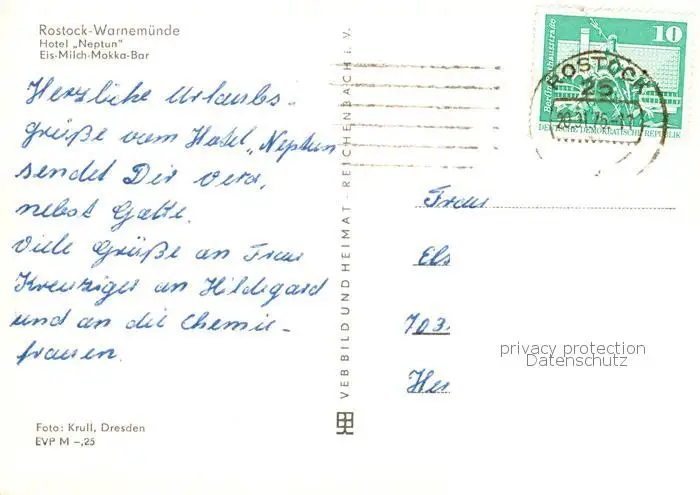 Rostock-Warnemünde
Hotel „Neptun"
Eis-Milch-Mokka-Bar
Herzliche Urlaubs-
grüße vom Hotel „Neptun
sendet Dir Vera,
nebst Gatte.
Viele Grüße an Frau
Kreuziger an Hildegard
und an die Chemie-
frauen.
Foto: Krull, Dresden
EVP M –,25
VEB BILD UND HEIMAT · REICHENBACH i. V.
10
DEUTSCHE DEMOKRATISCHE REPUBLIK
ROSTOCK
25
Frau
Els
703
Her
privacy protection
Datenschutz